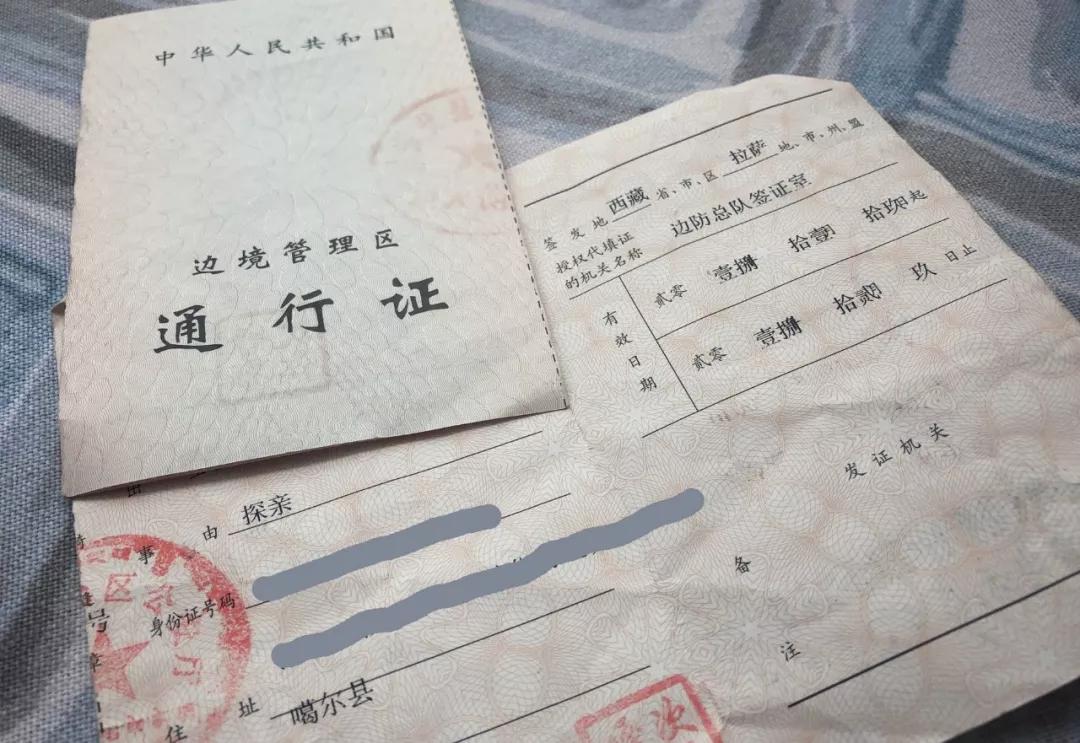 中华人民共和国
边境管理区
通行证
签发地 西藏 省、市、区 拉萨 地、市、州、盟
授权代填证
的机关名称
边防总队签证室
有效日期
贰零 壹捌 拾壹 拾玖 起
贰零 壹捌 拾贰 玖 日止
发证机关
事由 探亲
身份证号码
住址 噶尔县
备注
区
号
章
次